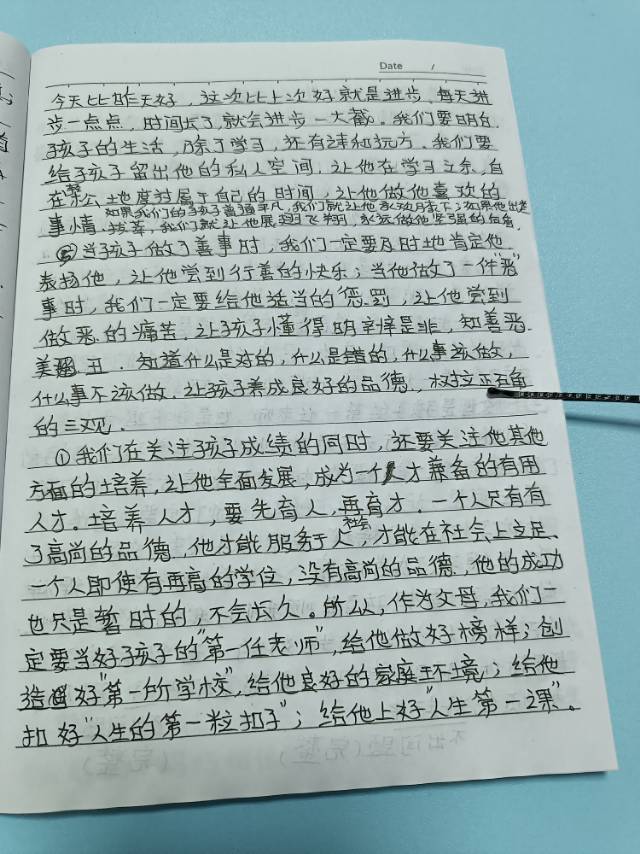 Date /
今天比昨天好，这次比上次好就是进步，每天进
步一点点，时间长了，就会进步一大截。我们要明白，
孩子的生活，除了学习，还有诗和远方。我们要
给孩子留出他的私人空间，让他在学习之余，自
在松地度过属于自己的时间，让他做他喜欢的
如果我们的孩子普通平凡，我们就让他承欢膝下；如果他出类
事情。拔萃，我们就让他展翅飞翔，永远做他坚强的后盾。
⑤当孩子做了善事时，我们一定要及时地肯定他
表扬他，让他尝到行善的快乐；当他做了一件"恶"
事时，我们一定要给他适当的惩罚，让他尝到
做恶的痛苦。让孩子懂得明辨是非，知善恶.
美丑．知道什么是对的，什么是错的，什么事该做，
什么事不该做．让孩子养成良好的品德，树立正确
的三观．
①我们在关注孩子成绩的同时，还要关注他其他
方面的培养，让他全面发展，成为一个人才兼备的有用
人才。培养人才，要先育人，再育才．一个人只有有
了高尚的品德，他才能服务于社会，才能在社会上立足、
一个人即使有再高的学位，没有高尚的品德，他的成功
也只是暂时的，不会长久。所以，作为父母，我们一
定要当好孩子的"第一任老师"，给他做好榜样；创
造好"第一所学校"，给他良好的家庭环境；给他
扣好"人生的第一粒扣子"；给他上好"人生第一课"。